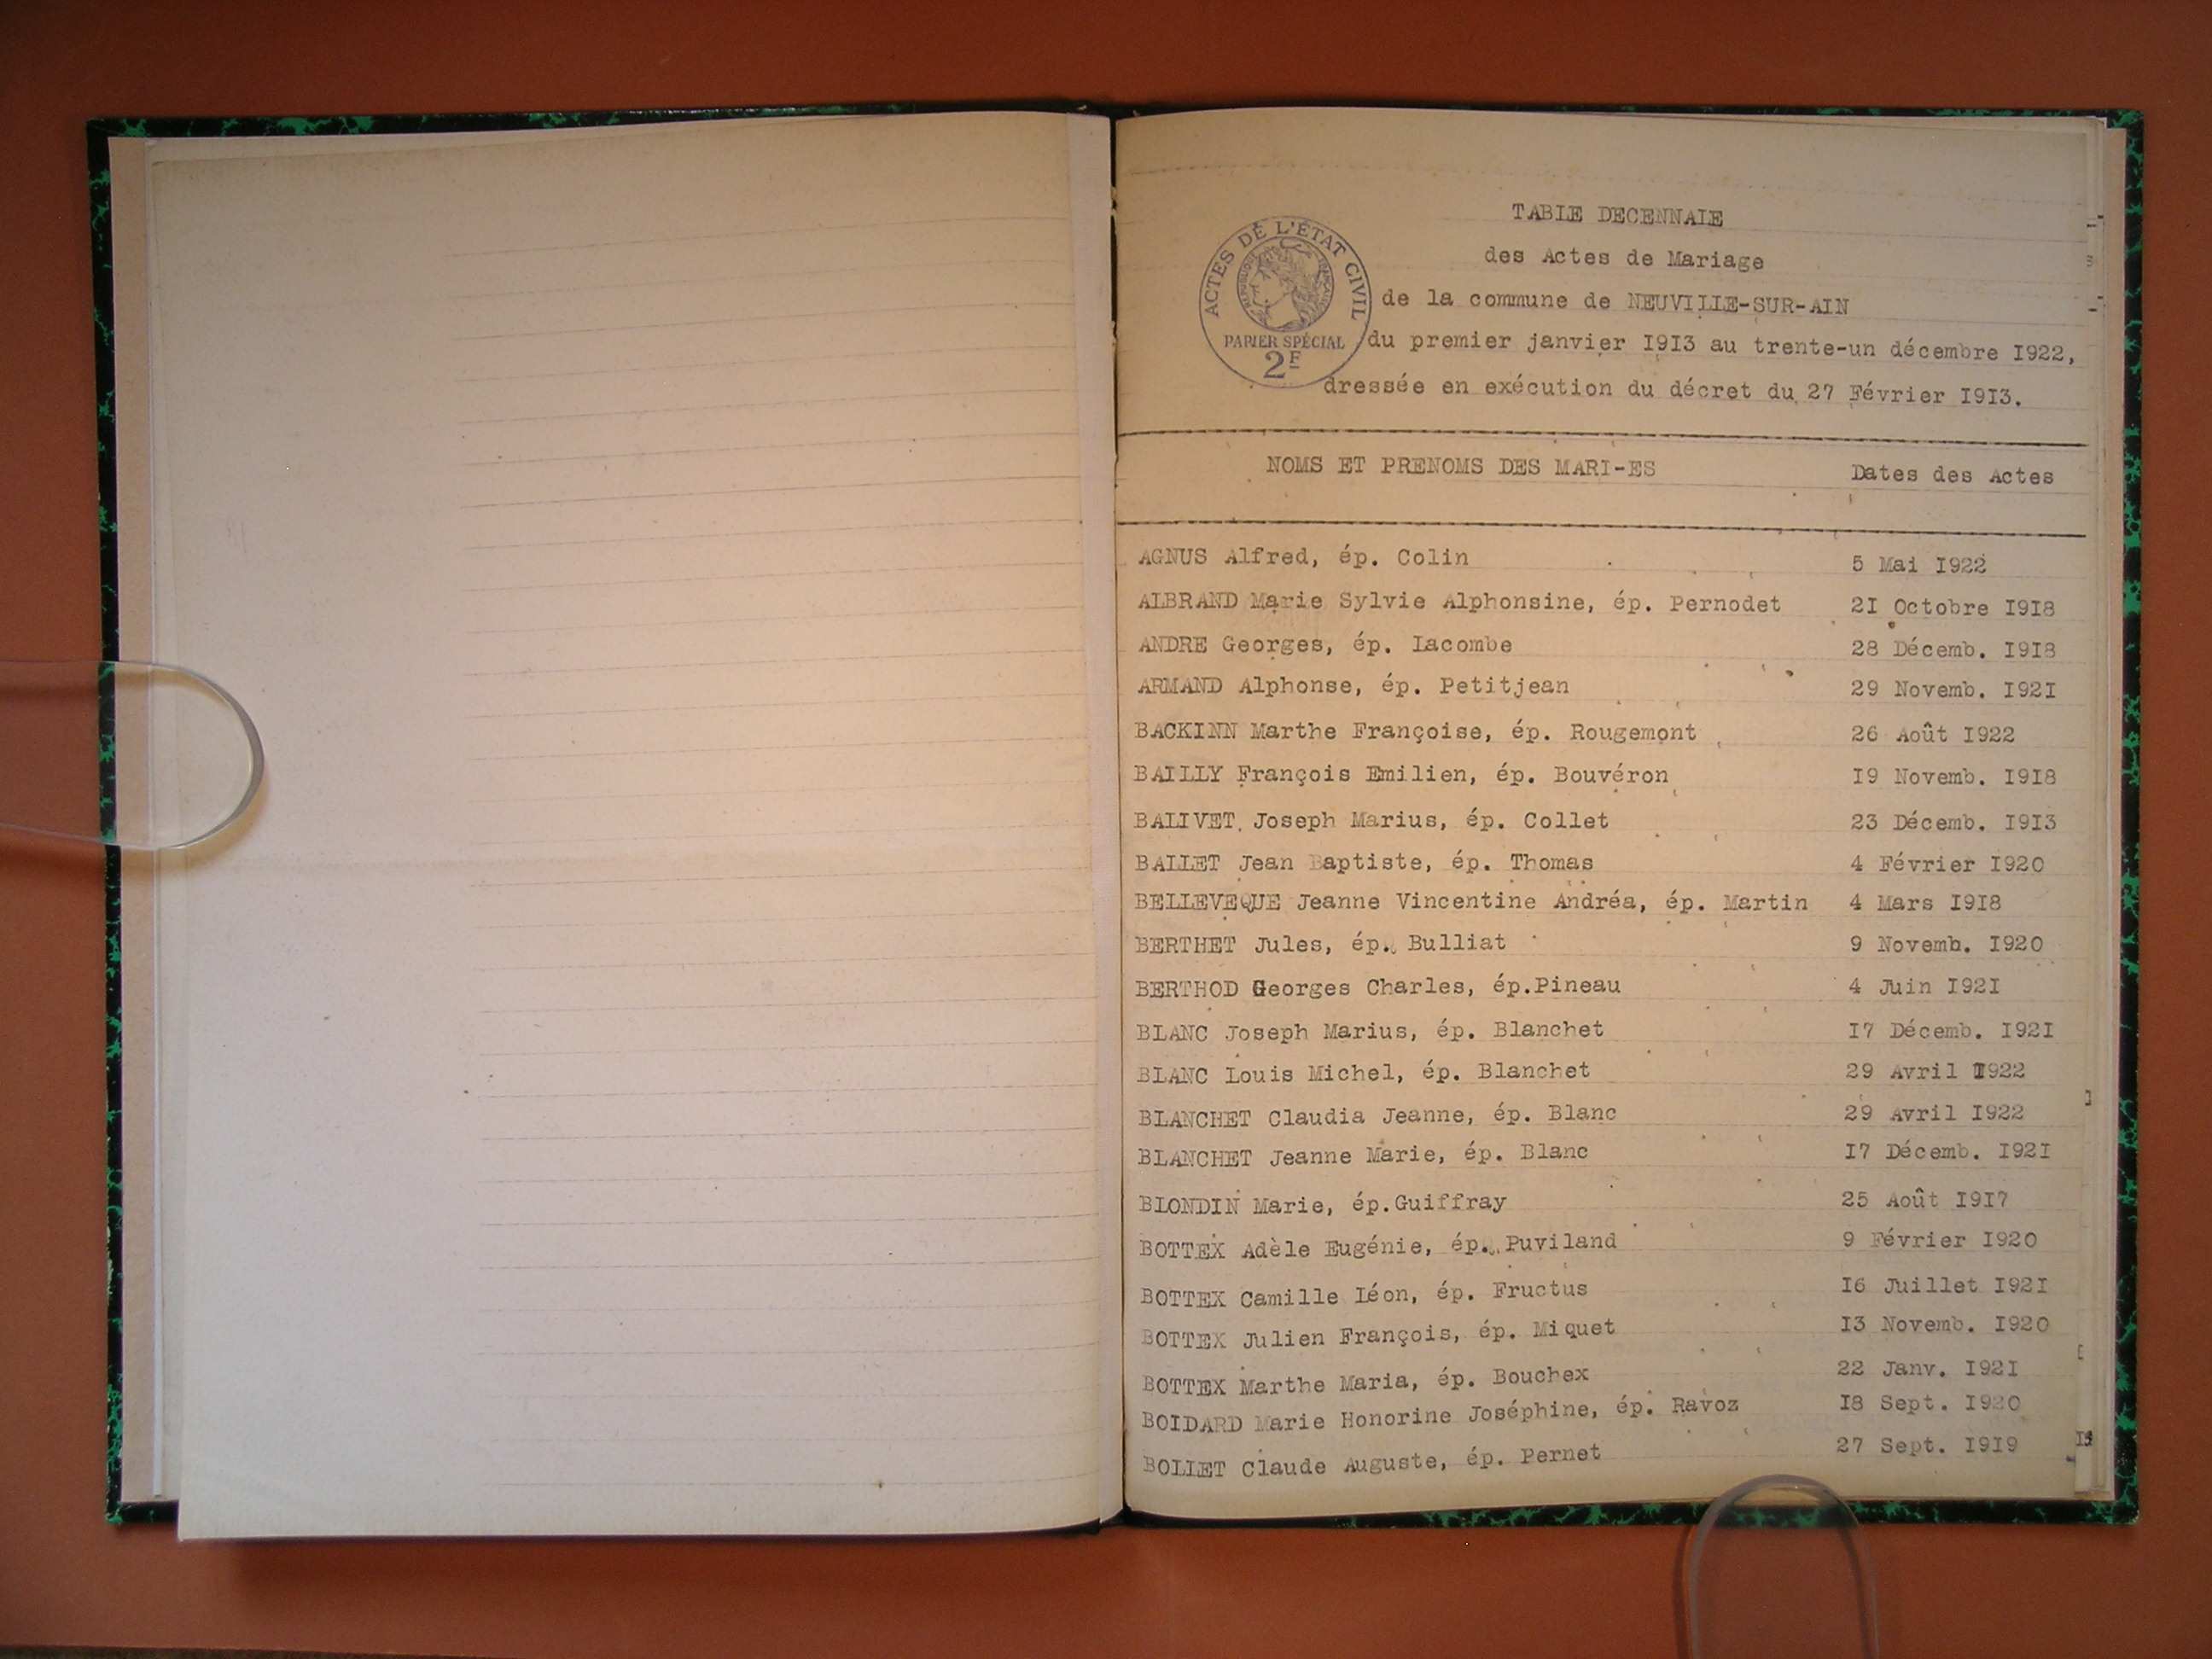 TABLE DECENNALE
des Actes de Mariage
ACTES DE L'ÉTAT CIVIL
REPUBLIQUE FRANÇAISE
PAPIER SPÉCIAL
2F
de la commune de NEUVILLE-SUR-AIN
du premier janvier I9I3 au trente-un décembre I922,
dressée en exécution du décret du 27 Février I9I3.
NOMS ET PRENOMS DES MARI-ES Dates des Actes
AGNUS Alfred, ép. Colin 5 Mai I922
ALBRAND Marie Sylvie Alphonsine, ép. Pernodet 2I Octobre I9I8
ANDRE Georges, ép. Lacombe 28 Décemb. I9I8
ARMAND Alphonse, ép. Petitjean 29 Novemb. I92I
BACKINN Marthe Françoise, ép. Rougemont 26 Août I922
BAILLY François Emilien, ép. Bouvéron I9 Novemb. I9I8
BALIVET Joseph Marius, ép. Collet 23 Décemb. I9I3
BALLET Jean Baptiste, ép. Thomas 4 Février I920
BELLEVEQUE Jeanne Vincentine Andréa, ép. Martin 4 Mars I9I8
BERTHET Jules, ép. Bulliat 9 Novemb. I920
BERTHOD Georges Charles, ép.Pineau 4 Juin I92I
BLANC Joseph Marius, ép. Blanchet I7 Décemb. I92I
BLANC Louis Michel, ép. Blanchet 29 Avril I922
BLANCHET Claudia Jeanne, ép. Blanc 29 Avril I922
BLANCHET Jeanne Marie, ép. Blanc I7 Décemb. I92I
BLONDIN Marie, ép.Guiffray 25 Août I9I7
BOTTEX Adèle Eugénie, ép. Puviland 9 Février I920
BOTTEX Camille Léon, ép. Fructus I6 Juillet I92I
BOTTEX Julien François, ép. Miquet I3 Novemb. I920
BOTTEX Marthe Maria, ép. Bouchex 22 Janv. I92I
BOIDARD Marie Honorine Joséphine, ép. Ravoz I8 Sept. I920
BOLLET Claude Auguste, ép. Pernet 27 Sept. I9I9